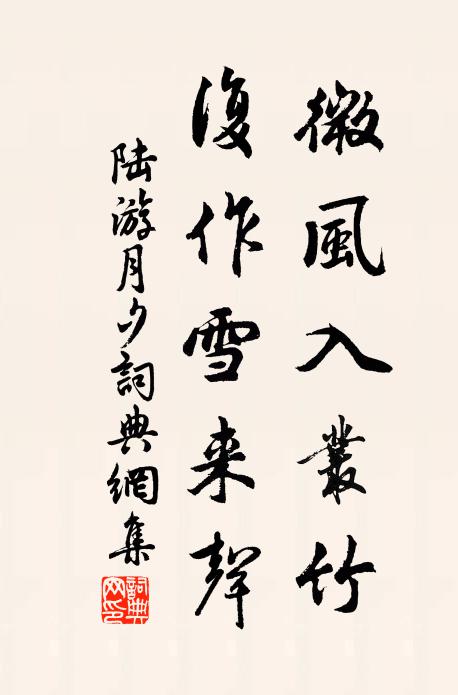 微風入叢竹
復作雪来聲
陸游月夕詞典網集
詞典網印